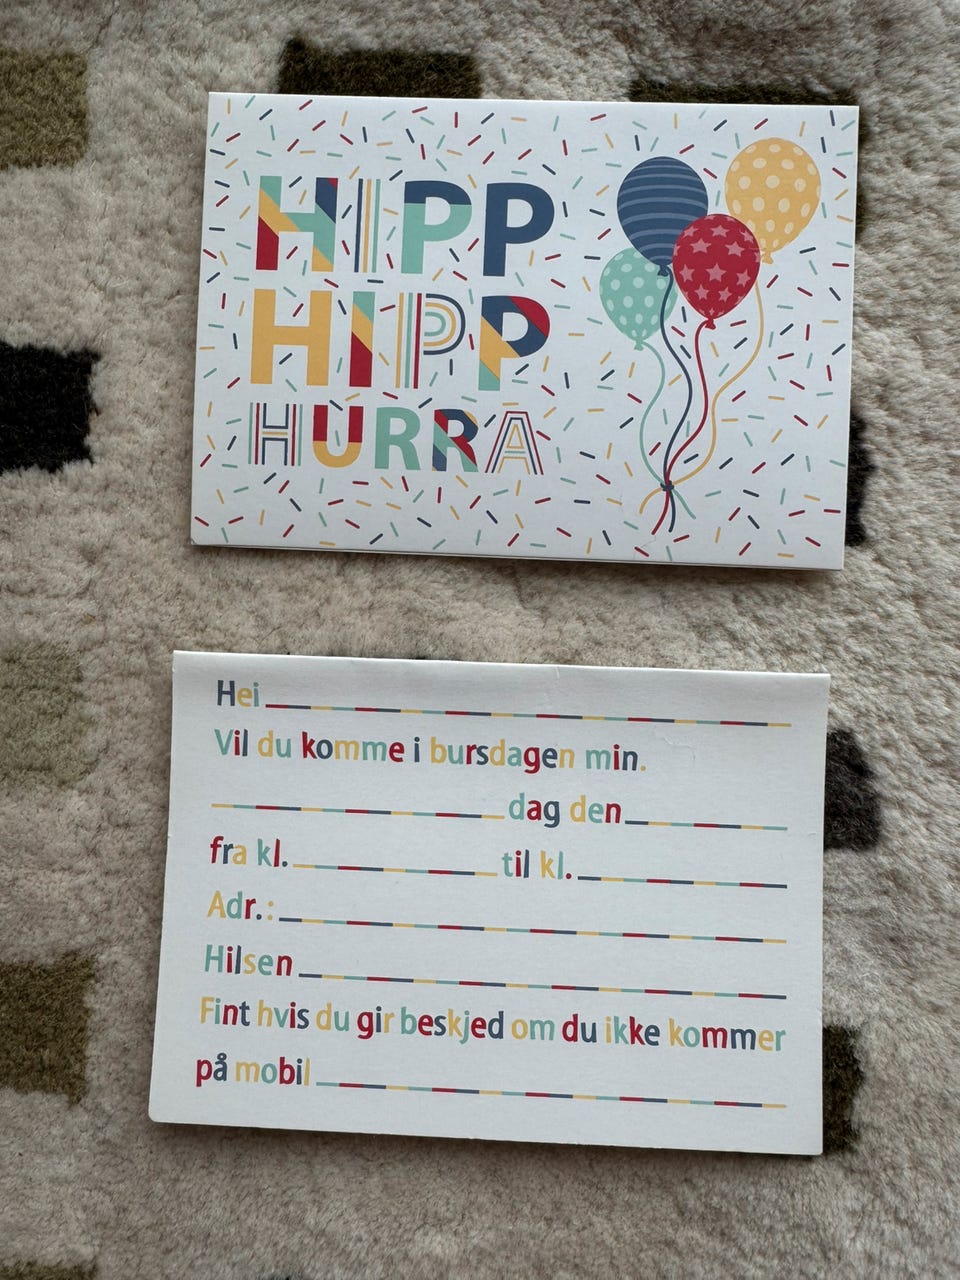 HIPP
HIPP
HURRA
Hei
Vil du komme i bursdagen min.
dag den
fra kl. til kl.
Adr.:
Hilsen
Fint hvis du gir beskjed om du ikke kommer
på mobil